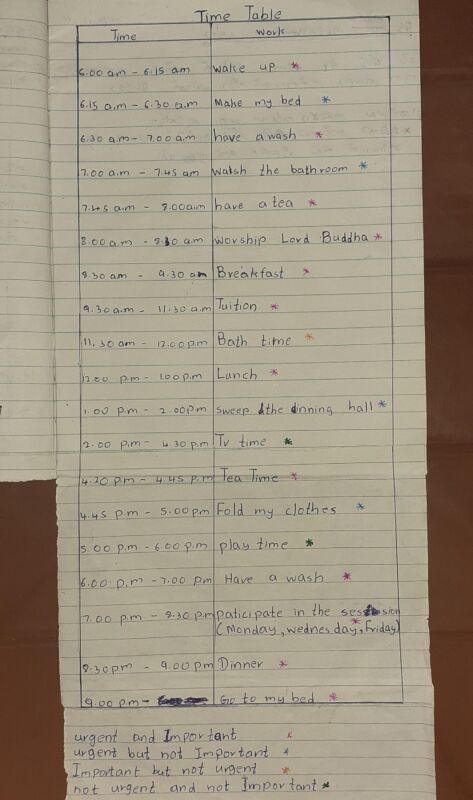 Time Table
Time Work
6.00 am - 6.15 am wake up *
6.15 a.m - 6.30 a.m Make my bed *
6.30 a.m - 7.00 a.m have a wash *
7.00 a.m - 7.45 am walsh the bathroom *
7.45 a.m - 8.00a.m have a tea *
8.00 a.m - 8.30 am worship Lord Buddha *
8.30 am - 9.30 am Breakfast *
9.30 a.m - 11.30 a.m Tuition *
11.30 am - 12.00 p.m Bath time *
12.00 p.m - 1.00 p.m Lunch *
1.00 p.m - 2.00pm sweep the dinning hall *
2.00 p.m - 4.30 p.m Tv time *
4.30 p.m - 4.45 p.m Tea Time *
4.45 p.m - 5.00 p.m Fold my clothes *
5.00 p.m - 6.00 p.m play time *
6.00 p.m - 7.00 pm Have a wash *
7.00 p.m - 8.30 pm paticipate in the session
(Monday, wednesday, Friday) *
8.30pm - 9.00 p.m Dinner *
9.00 p.m - Go to my bed *
urgent and Important *
urgent but not Important *
Important but not urgent *
not urgent and not Important *